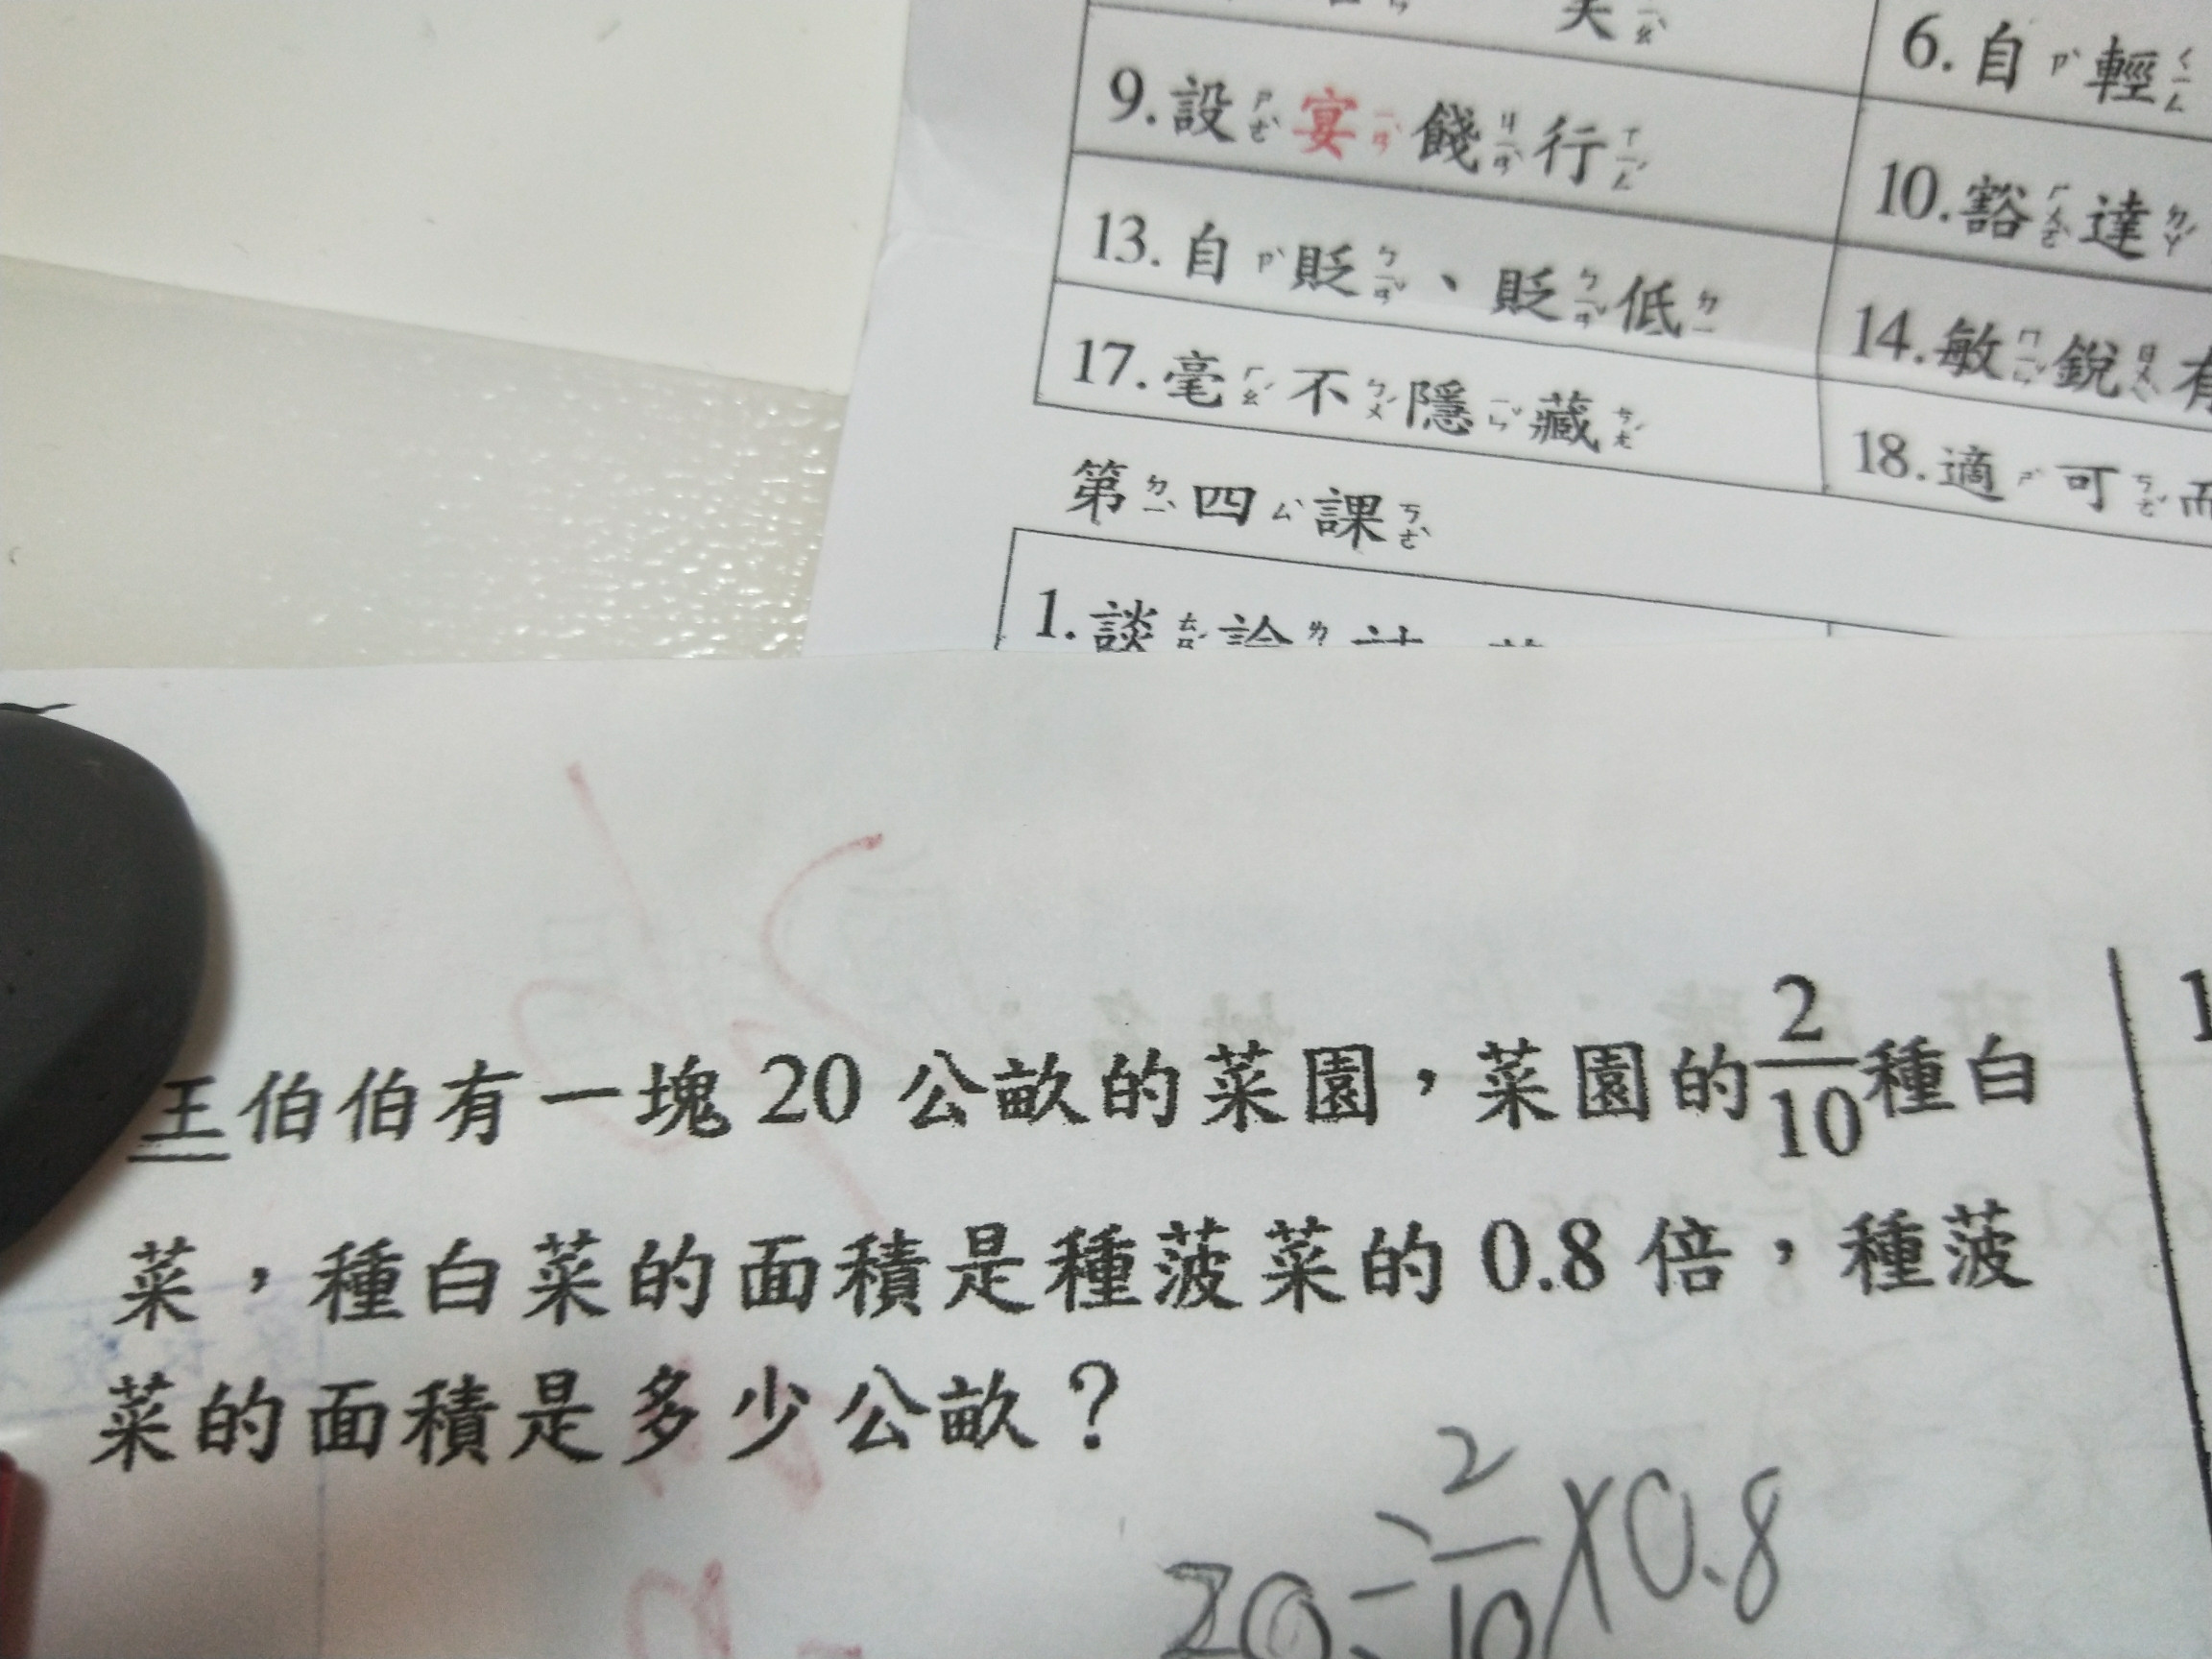 6.自ㄗˋ輕ㄑㄧㄥ
9.設ㄕㄜˋ宴ㄧㄢˋ餞ㄐㄧㄢˋ行ㄒㄧㄥˊ
10.豁ㄏㄨㄛˋ達ㄉㄚˊ
13.自ㄗˋ貶ㄅㄧㄢˇ、貶ㄅㄧㄢˇ低ㄉㄧ
14.敏ㄇㄧㄣˇ銳ㄖㄨㄟˋ有
17.毫ㄏㄠˊ不ㄅㄨˋ隱ㄧㄣˇ藏ㄘㄤˊ
18.適ㄕˋ可ㄎㄜˇ而
第ㄉㄧˋ四ㄙˋ課ㄎㄜˋ
1.談ㄊㄢˊ論
王伯伯有一塊 20 公畝的菜園，菜園的2/10種白
菜，種白菜的面積是種菠菜的 0.8 倍，種菠
菜的面積是多少公畝？
20÷2/10×0.8